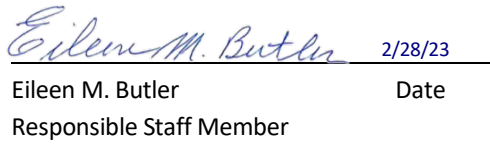 Eileen M. Butler 2/28/23
Eileen M. Butler Date
Responsible Staff Member